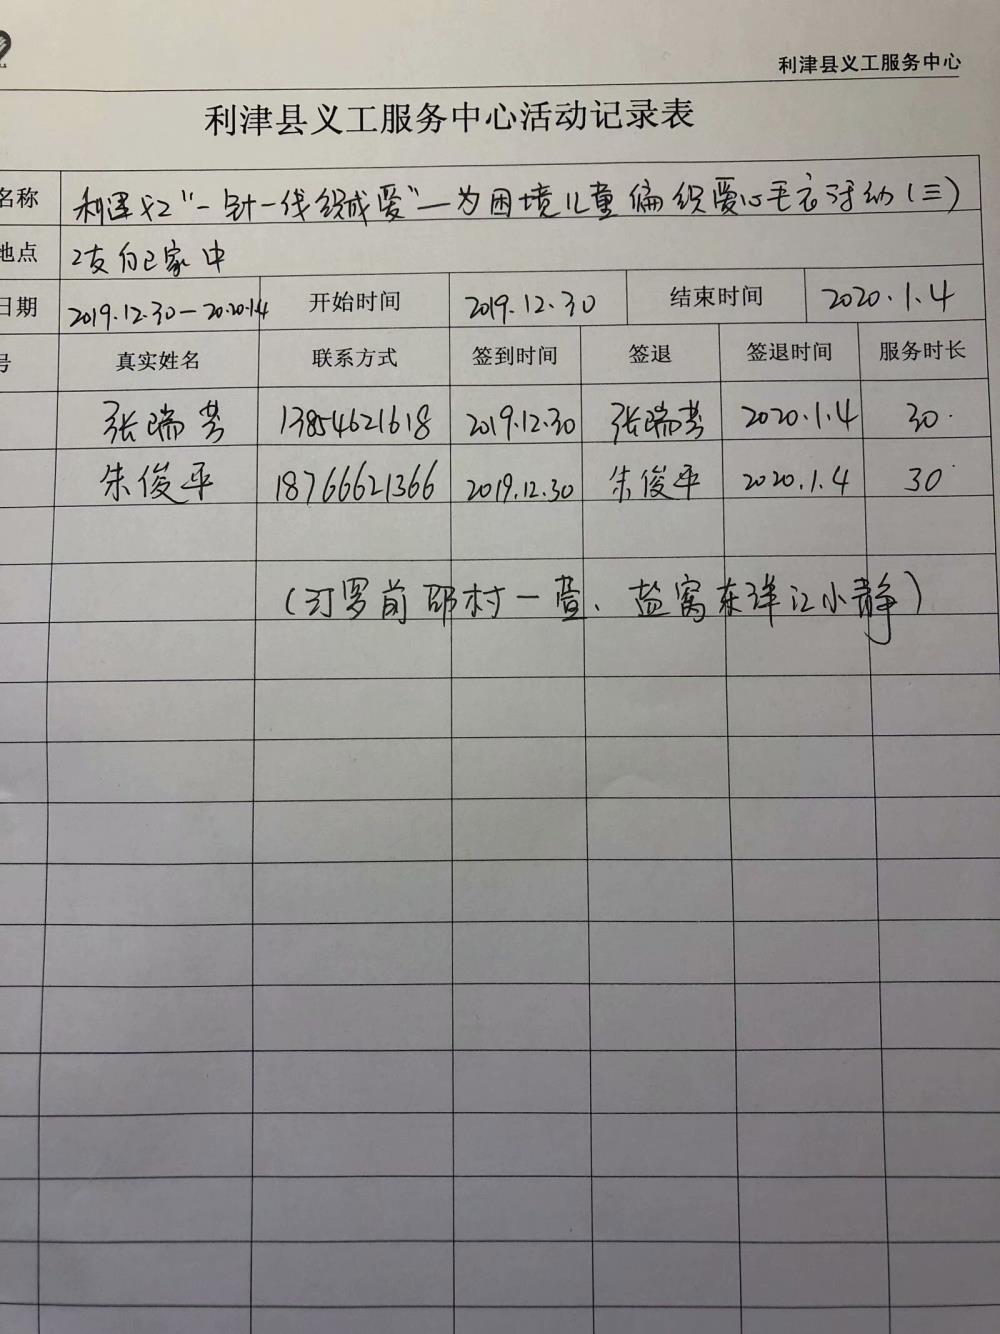 利津县义工服务中心
利津县义工服务中心活动记录表
名称 利津义工"一针一线织成爱"—为困境儿童偏织爱心毛衣活动(三)
地点 工友自己家中
日期 2019.12.30—2020.1.4 开始时间 2019.12.30 结束时间 2020.1.4
号 真实姓名 联系方式 签到时间 签退 签退时间 服务时长
张瑞芳 13854621618 2019.12.30 张瑞芳 2020.1.4 30
朱俊平 18766621366 2019.12.30 朱俊平 2020.1.4 30
(汀罗前邵村一萱、盐窝东洋江小静)